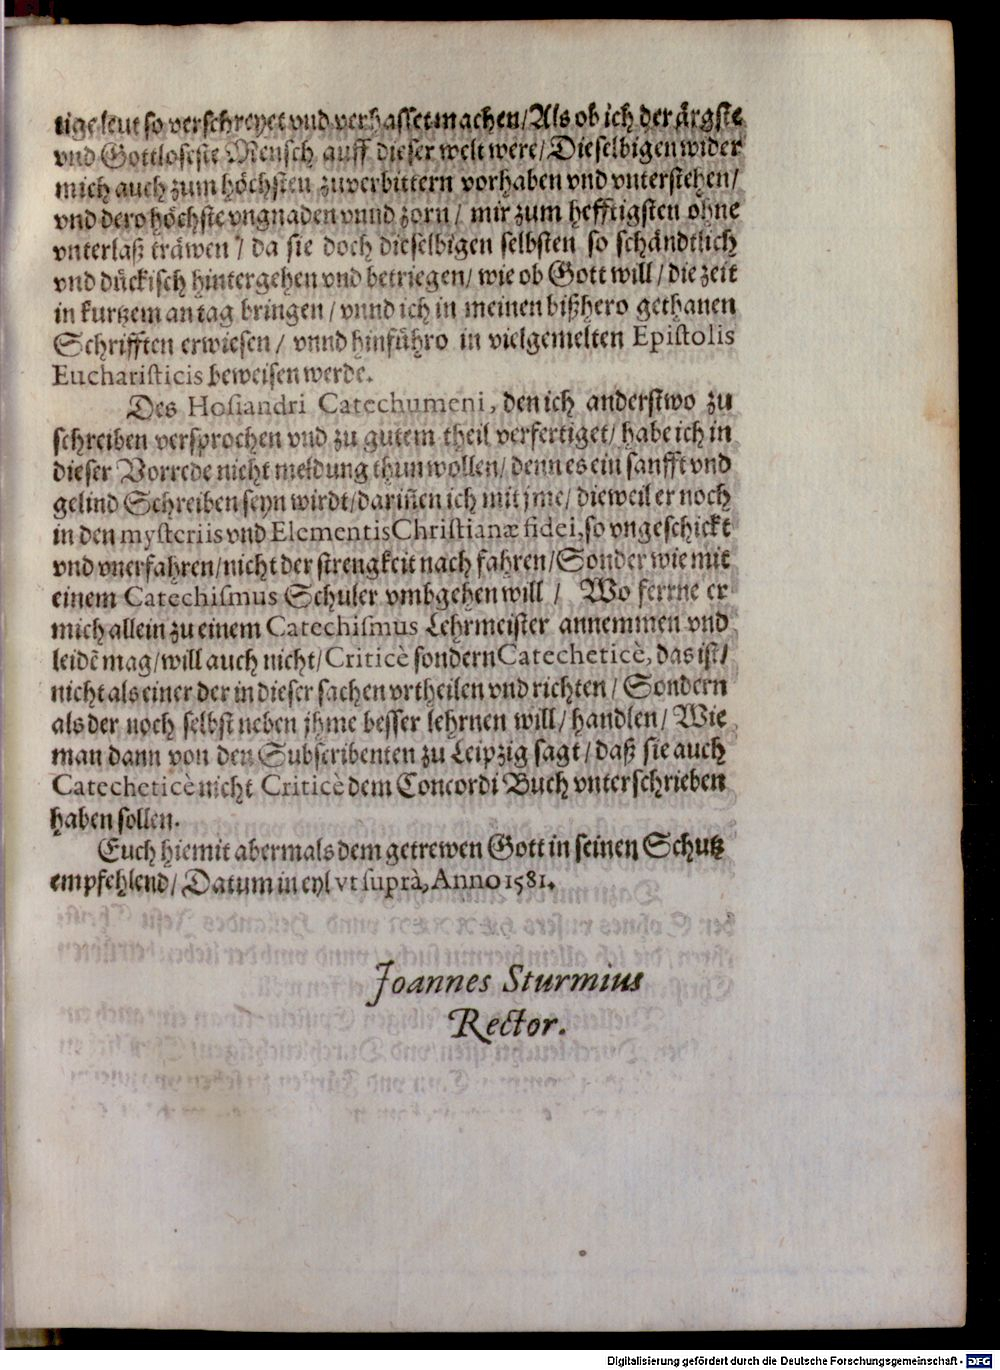 tige leut so verschreyet vnd verhasset machen/ Als ob ich der ärgste
vnd Gottloseste Mensch auff dieser welt were/ Dieselbigen wider
mich auch zum höchsten zuverbittern vorhaben vnd vnterstehen/
vnd dero höchste vngnaden vnnd zorn/ mir zum hefftigsten ohne
vnterlaß träwen/ da sie doch dieselbigen selbsten so schändtlich
vnd dückisch hintergehen vnd betriegen/ wie ob Gott will/ die zeit
in kurtzem an tag bringen/ vnnd ich in meinen bißhero gethanen
Schrifften erwiesen/ vnnd hinführo in vielgemelten Epistolis
Eucharisticis beweisen werde.
Des Hosiandri Catechumeni, den ich anderstwo zu
schreiben versprochen vnd zu gutem theil verfertiget/ habe ich in
dieser Vorrede nicht meldung thun wollen/ denn es ein sanfft vnd
gelind Schreiben seyn wirdt/ dariñen ich mit jme/ dieweil er noch
in den mysteriis vnd Elementis Christianæ fidei, so vngeschickt
vnd vnerfahren/ nicht der strengkeit nach fahren/ Sonder wie mit
einem Catechismus Schuler vmbgehen will/ Wo ferrne er
mich allein zu einem Catechismus Lehrmeister annemmen vnd
leidē mag/ will auch nicht/ Criticè sondern Catecheticè, das ist/
nicht als einer der in dieser sachen vrtheilen vnd richten/ Sondern
als der noch selbst neben jhme besser lehrnen will/ handlen/ Wie
man dann von den Subscribenten zu Leipzig sagt/ daß sie auch
Catecheticè nicht Criticè dem Concordi Buch vnterschrieben
haben sollen.
Euch hiemit abermals dem getrewen Gott in seinen Schutz
empfehlend/ Datum in eyl vt suprà, Anno 1581.
Joannes Sturmius
Rector.
Digitalisierung gefördert durch die Deutsche Forschungsgemeinschaft - DFG